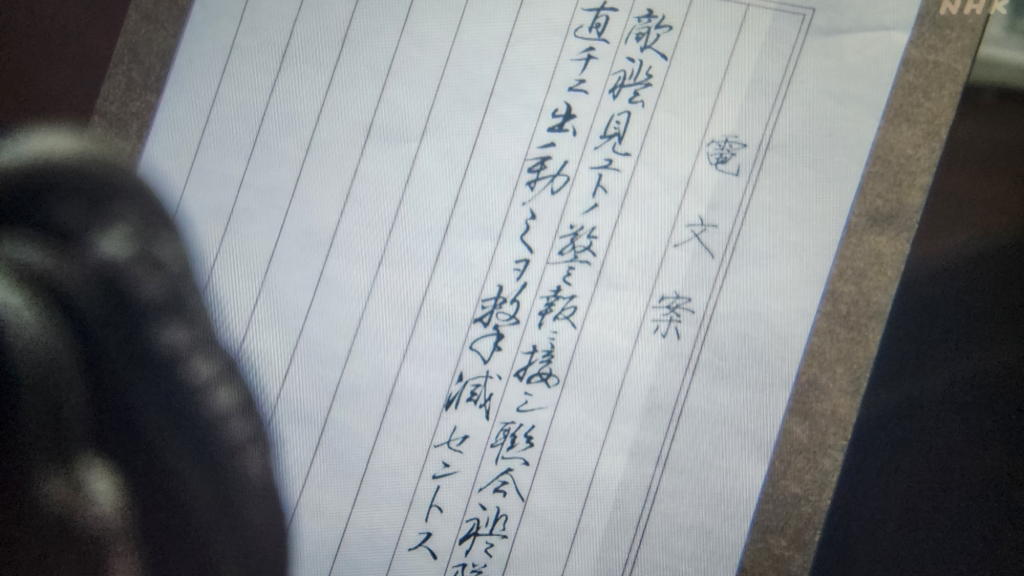 NHK
電文案
敵艦見ユトノ警報ニ接シ聯合艦
直チニ出動之ヲ撃滅セントス